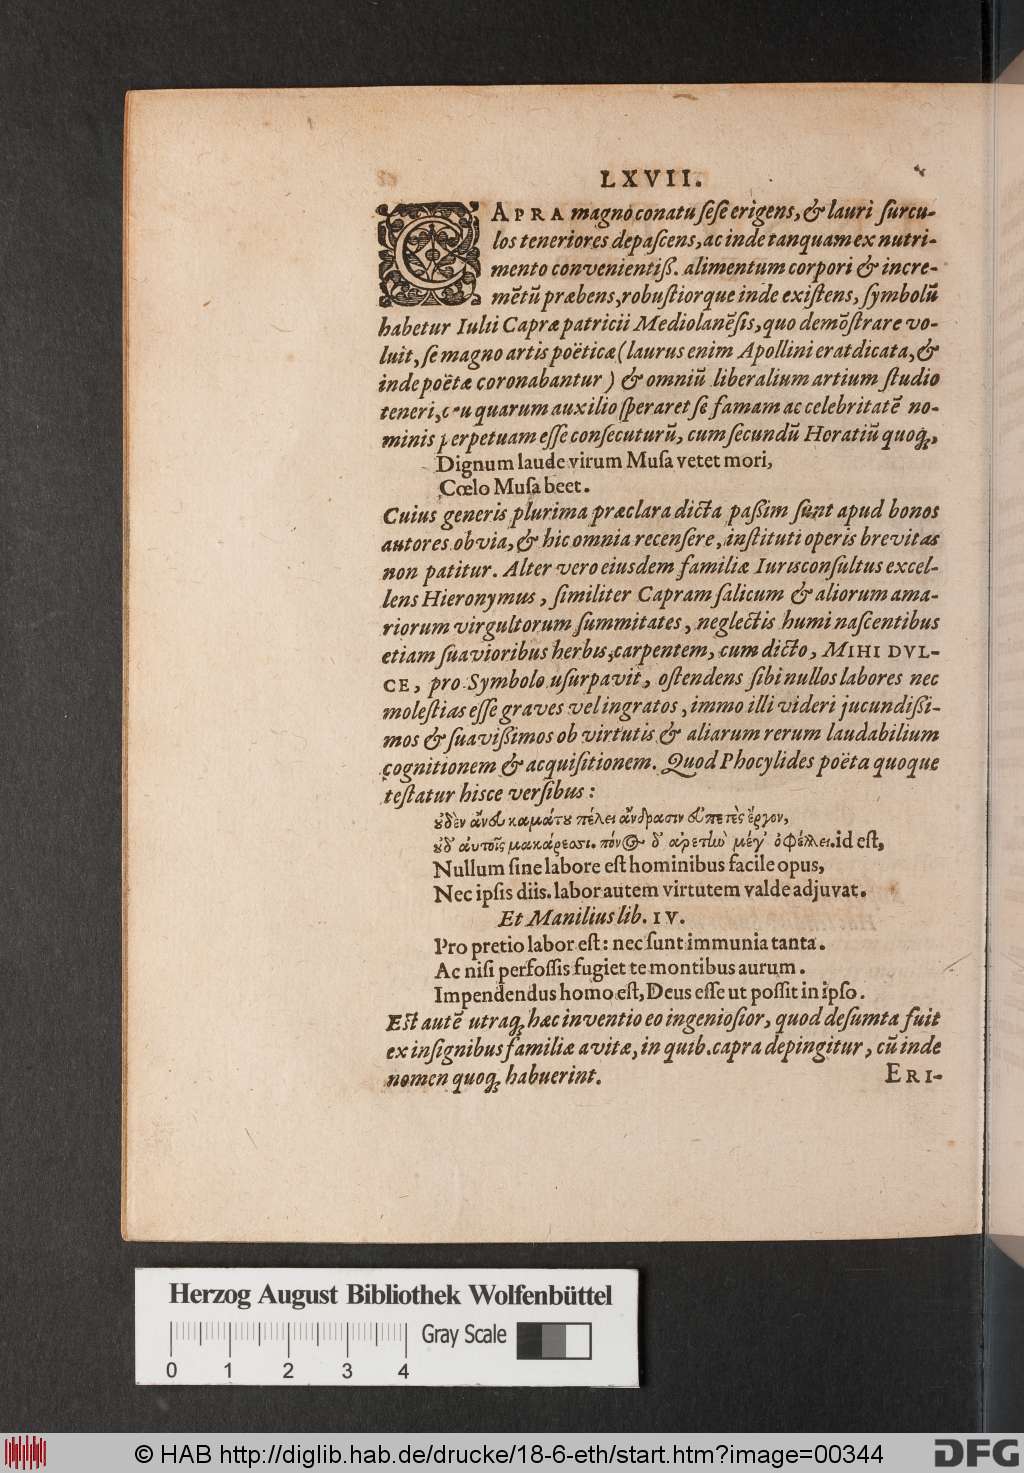 LXVII.
CAPRA magno conatu ſeſe erigens, & lauri ſurcu-
los teneriores depaſcens, ac inde tanquam ex nutri-
mento convenientiß. alimentum corpori & incre-
mẽtũ præbens, robuſtiorque inde exiſtens, ſymbolũ
habetur Iulii Capræ patricii Mediolanẽſis, quo demõſtrare vo-
luit, ſe magno artis poëticæ (laurus enim Apollini erat dicata, &
inde poëtæ coronabantur) & omniũ liberalium artium ſtudio
teneri, ceu quarum auxilio ſperaret ſe famam ac celebritatẽ no-
minis perpetuam eſſe conſecuturũ, cum ſecundũ Horatiũ quoqꝫ,
Dignum laude virum Muſa vetet mori,
Cœlo Muſa beet.
Cuius generis plurima præclara dicta paßim ſunt apud bonos
autores obvia, & hic omnia recenſere, inſtituti operis brevitas
non patitur. Alter vero eiusdem familiæ Iurisconſultus excel-
lens Hieronymus, ſimiliter Capram ſalicum & aliorum ama-
riorum virgultorum ſummitates, neglectis humi naſcentibus
etiam ſuavioribus herbis, carpentem, cum dicto, MIHI DVL-
CE, pro Symbolo uſurpavit, oſtendens ſibi nullos labores nec
moleſtias eſſe graves vel ingratos, immo illi videri jucundißi-
mos & ſuavißimos ob virtutis & aliarum rerum laudabilium
cognitionem & acquiſitionem. Quod Phocylides poëta quoque
teſtatur hisce verſibus:
ȣ̓δὲν ἄνευ καμάτȣ πέλει ἄνδρασιν εὐπετὲς ἔργον,
ȣ̓δ' αὐτοῖς μακάρεσσι. πόνος δ' ἀρετὴν μέγ' ὀφέλλει. id eſt,
Nullum ſine labore eſt hominibus facile opus,
Nec ipſis diis. labor autem virtutem valde adjuvat.
Et Manilius lib. IV.
Pro pretio labor eſt: nec ſunt immunia tanta.
Ac niſi perfoſſis fugiet te montibus aurum.
Impendendus homo eſt, Deus eſſe ut poſſit in ipſo.
Eſt autẽ utraqꝫ hæc inventio eo ingenioſior, quod deſumta fuit
ex inſignibus familiæ avitæ, in quib. capra depingitur, cũ inde
nomen quoqꝫ habuerint.
ERI-
Herzog August Bibliothek Wolfenbüttel
Gray Scale
0 1 2 3 4
© HAB http://diglib.hab.de/drucke/18-6-eth/start.htm?image=00344
DFG
DFG